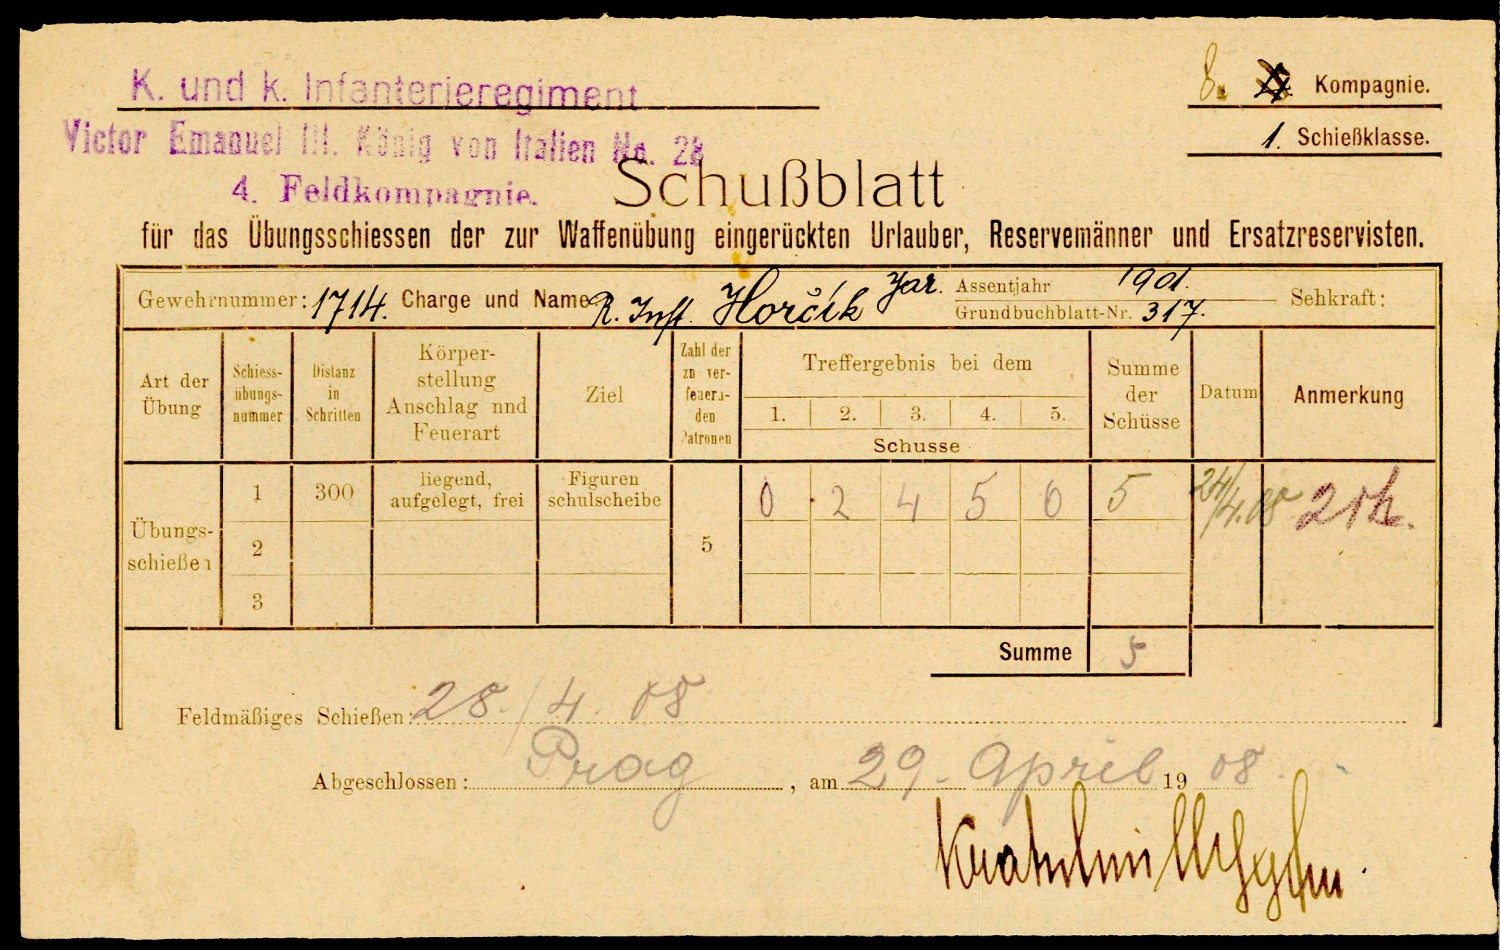 K. und k. Infanterieregiment
Victor Emanuel III. König von Italien No. 28
4. Feldkompagnie.
8. Kompagnie.
1. Schießklasse.
Schußblatt
für das Übungsschiessen der zur Waffenübung eingerückten Urlauber, Reservemänner und Ersatzreservisten.
Gewehrnummer: 1714. Charge und Name R. Inft. Horčík Jar. Assentjahr 1901. Sehkraft:
Grundbuchblatt-Nr. 317.
Art der Übung
Schiess-übungs-nummer
Distanz in Schritten
Körper-stellung Anschlag nnd Feuerart
Ziel
Zahl der zu ver-feuern-den Patronen
Treffergebnis bei dem
1. 2. 3. 4. 5.
Schusse
Summe der Schüsse
Datum
Anmerkung
Übungs-schießen
1 300 liegend, aufgelegt, frei Figuren schulscheibe 0 2 4 5 0 5 24/4.08
2 5
3
Summe 5
Feldmäßiges Schießen: 28./4. 08
Abgeschlossen: Prag, am 29. April 1908